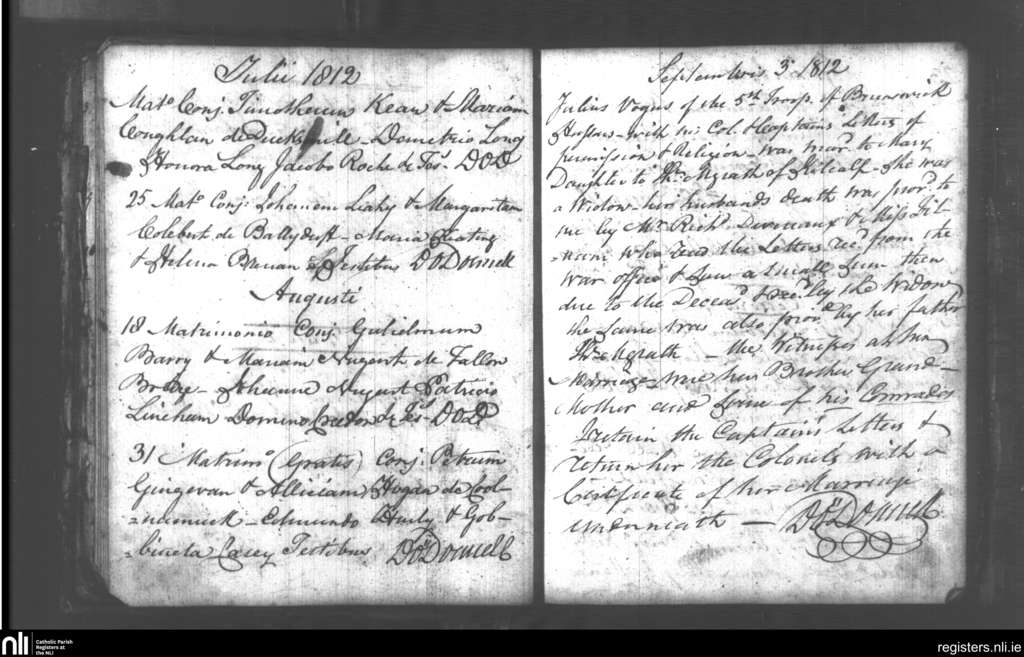 Julii 1812
Mato. Conj. Timotheum Kean & Mariam
Coughlan de Duckspill - Demetrio Long
& Honora Long Jacobo Roche de Tes. DOD
25 Mato Conj. Johannem Leahy & Margaretam
Colebert de Ballyduff - Maria Keating
& Helena Brenan Testibus DO'Donnell
Augusti
18 Matrimonio Conj. Gulielmum
Barry & Mariam Nugent de Fallon
Bridge - Johanne Nugent Patricio
Lineham Domino Creedon de Tes. DOD
31 Matrimo. (Gratis) Conj. Petrum
Gingevan & Alliciam Hogan de Cool-
=namuck - Edmundo Hurly & Gob-
=bineta Casey Testibus DO'Donnell
Septembris 3 1812
Julius Vogus of the 5th Troop of Brunswick
Hussars - with his Col. & Captains Letters of
permission & Religion - was mard. to Mary
Daughter to Ths. Mgrath of Kilcalf - she was
a Widow - her husbands death was provd. to
me by Mr. Richd. &
who read the Letters recd. from the
War office & saw a small sum then
due to the Deceasd. & recd. by the Widow
the same was also provd. by her father
Ths. Mgrath - the Witnesses at her
Marriage were her Brother Grand-
Mother and some of his Comrades
I retain the Captain's Letters &
return her the Colonels with a
Certificate of her Marriage
underneath - DO'Donnell
nli
Catholic Parish
Registers at
the NLI
registers.nli.ie